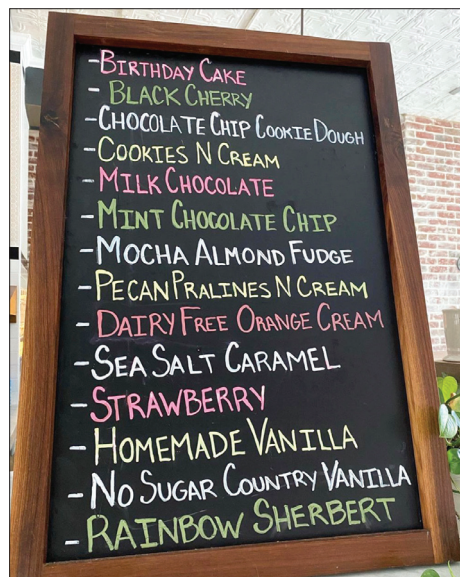 -BIRTHDAY CAKE
- BLACK CHERRY
-CHOCOLATE CHIP COOKIE DOUGH
-COOKIES N CREAM
-MILK CHOCOLATE
-MINT CHOCOLATE CHIP
-MOCHA ALMOND FUDGE
-PECAN PRALINES N CREAM
-DAIRY FREE ORANGE CREAM
-SEA SALT CARAMEL
-STRAWBERRY
-HOMEMADE VANILLA
-NO SUGAR COUNTRY VANILLA
-RAINBOW SHERBERT